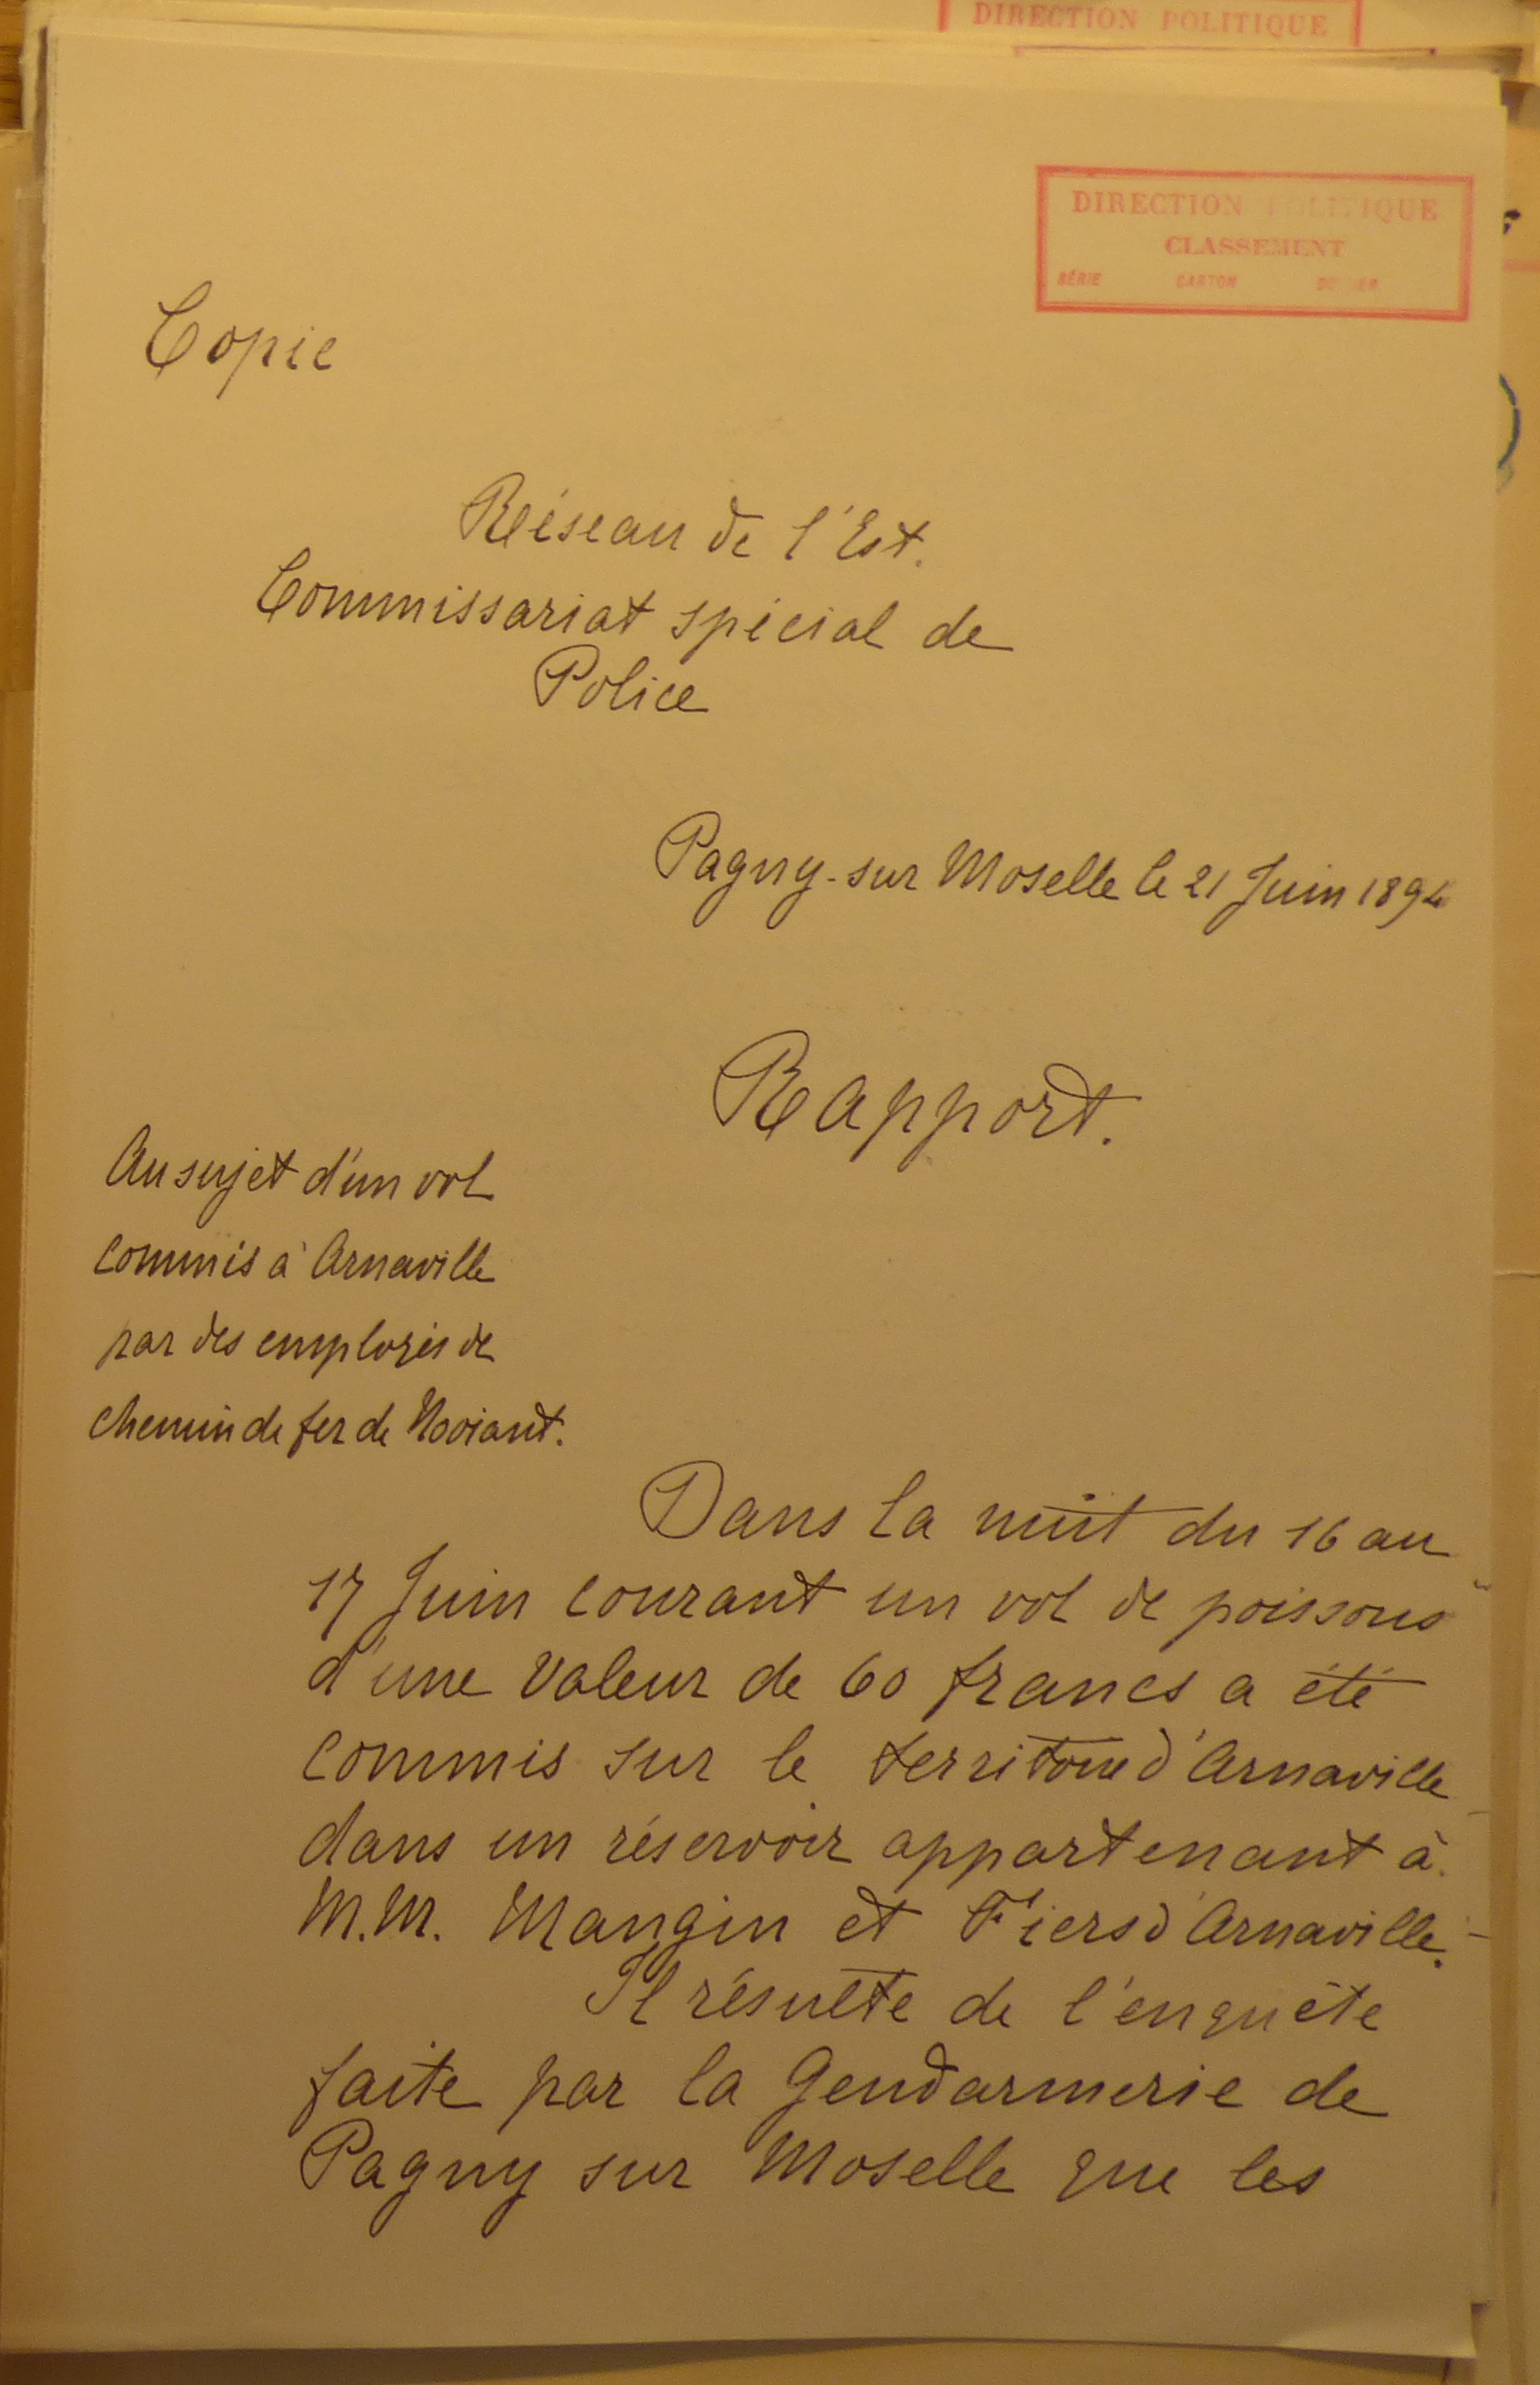 DIRECTION POLITIQUE
DIRECTION POLITIQUE
CLASSEMENT
SÉRIE CARTON DOSSIER
Copie
Réseau de l'Est.
Commissariat spécial de
Police
Pagny-sur Moselle le 21 Juin 1894
Rapport.
Au sujet d'un vol
commis à Arnaville
par des employés de
chemin de fer de Novéant.
Dans la nuit du 16 au
17 Juin courant un vol de poissons
d'une valeur de 60 francs a été
commis sur le territoire d'Arnaville
dans un réservoir appartenant à
M.M. Mangin et Fiers d'Arnaville.
Il résulte de l'enquête
faite par la Gendarmerie de
Pagny sur Moselle que les